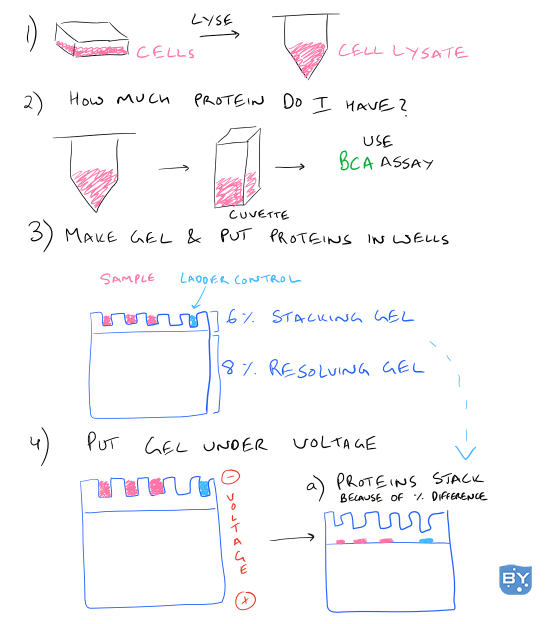 1) LYSE
CELLS
CELL LYSATE
2) HOW MUCH PROTEIN DO I HAVE?
USE
BCA ASSAY
CUVETTE
3) MAKE GEL & PUT PROTEINS IN WELLS
SAMPLE LADDER CONTROL
6% STACKING GEL
8% RESOLVING GEL
4) PUT GEL UNDER VOLTAGE
- VOLTAGE +
a) PROTEINS STACK
BECAUSE OF % DIFFERENCE
BY